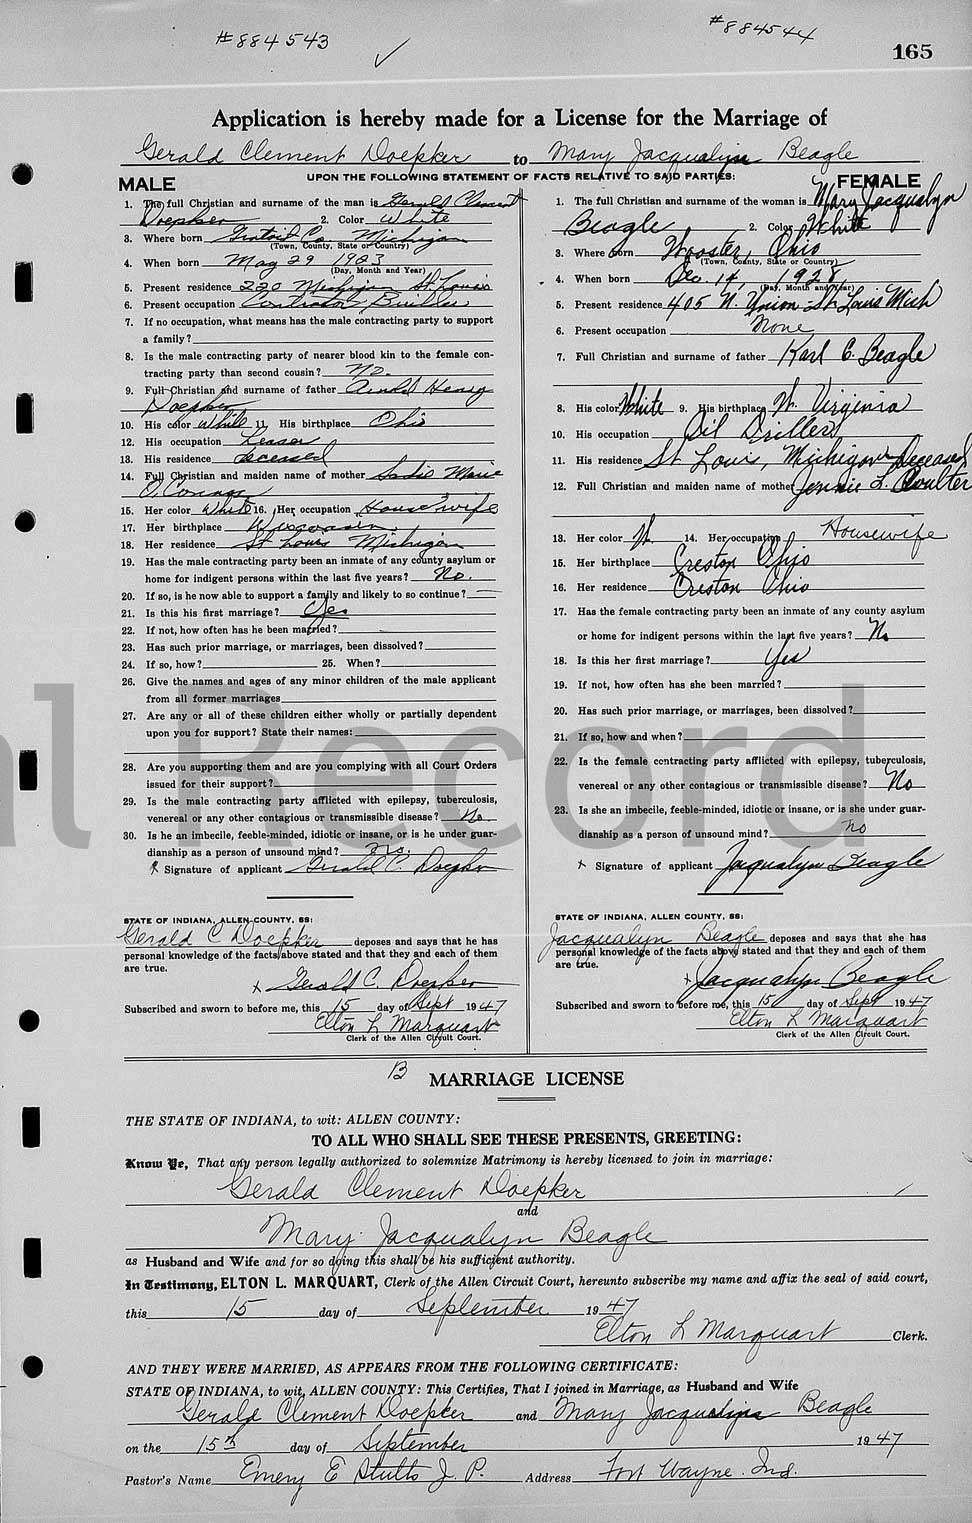 #884543
#884544
165
Application is hereby made for a License for the Marriage of
Gerald Clement Doepker to Mary Jacqualyn Beagle
UPON THE FOLLOWING STATEMENT OF FACTS RELATIVE TO SAID PARTIES:
MALE
1. The full Christian and surname of the man is Gerald Clement
Doepker 2. Color White
3. Where born Gratiot Co. Michigan
(Town, County, State or Country)
4. When born May 29 1923
(Day, Month and Year)
5. Present residence 220 Michigan St. Louis
6. Present occupation Contractor Builder
7. If no occupation, what means has the male contracting party to support
a family?
8. Is the male contracting party of nearer blood kin to the female con-
tracting party than second cousin? No.
9. Full Christian and surname of father Arnold Henry
Doepker
10. His color White 11. His birthplace Ohio
12. His occupation Leaser
13. His residence deceased
14. Full Christian and maiden name of mother Sadie Marie
O'Connor
15. Her color White 16. Her occupation Housewife
17. Her birthplace Wisconsin
18. Her residence St Louis Michigan
19. Has the male contracting party been an inmate of any county asylum or
home for indigent persons within the last five years? No.
20. If so, is he now able to support a family and likely to so continue?
21. Is this his first marriage? Yes
22. If not, how often has he been married?
23. Has such prior marriage, or marriages, been dissolved?
24. If so, how? 25. When?
26. Give the names and ages of any minor children of the male applicant
from all former marriages
27. Are any or all of these children either wholly or partially dependent
upon you for support? State their names:
28. Are you supporting them and are you complying with all Court Orders
issued for their support?
29. Is the male contracting party afflicted with epilepsy, tuberculosis,
venereal or any other contagious or transmissible disease? No.
30. Is he an imbecile, feeble-minded, idiotic or insane, or is he under guar-
dianship as a person of unsound mind? No.
x Signature of applicant Gerald C. Doepker
STATE OF INDIANA, ALLEN COUNTY, SS:
Gerald C Doepker deposes and says that he has
personal knowledge of the facts above stated and that they and each of them
are true.
x Gerald C. Doepker
Subscribed and sworn to before me, this 15 day of Sept 1947
Elton L Marquart
Clerk of the Allen Circuit Court.
FEMALE
1. The full Christian and surname of the woman is Mary Jacqualyn
Beagle 2. Color White
3. Where born Wooster, Ohio
(Town, County, State or Country)
4. When born Dec. 14, 1928
(Day, Month and Year)
5. Present residence 405 N. Union - St Louis Mich
6. Present occupation None
7. Full Christian and surname of father Karl C. Beagle
8. His color White 9. His birthplace W. Virginia
10. His occupation Oil Driller
11. His residence St Louis, Michigan Deceased
12. Full Christian and maiden name of mother Jennie L. Coulter
13. Her color W. 14. Her occupation Housewife
15. Her birthplace Creston Ohio
16. Her residence Creston Ohio
17. Has the female contracting party been an inmate of any county asylum
or home for indigent persons within the last five years? No
18. Is this her first marriage? Yes
19. If not, how often has she been married?
20. Has such prior marriage, or marriages, been dissolved?
21. If so, how and when?
22. Is the female contracting party afflicted with epilepsy, tuberculosis,
venereal or any other contagious or transmissible disease? No
23. Is she an imbecile, feeble-minded, idiotic or insane, or is she under guar-
dianship as a person of unsound mind? No
x Signature of applicant Jacqualyn Beagle
STATE OF INDIANA, ALLEN COUNTY, SS:
Jacqualyn Beagle deposes and says that she has
personal knowledge of the facts above stated and that they and each of them
are true.
x Jacqualyn Beagle
Subscribed and sworn to before me, this 15 day of Sept 1947
Elton L Marquart
Clerk of the Allen Circuit Court.
l Record
B MARRIAGE LICENSE
THE STATE OF INDIANA, to wit: ALLEN COUNTY:
TO ALL WHO SHALL SEE THESE PRESENTS, GREETING:
Know Ye, That any person legally authorized to solemnize Matrimony is hereby licensed to join in marriage:
Gerald Clement Doepker
and
Mary Jacqualyn Beagle
as Husband and Wife and for so doing this shall be his sufficient authority.
In Testimony, ELTON L. MARQUART, Clerk of the Allen Circuit Court, hereunto subscribe my name and affix the seal of said court,
this 15 day of September 1947
Elton L Marquart Clerk.
AND THEY WERE MARRIED, AS APPEARS FROM THE FOLLOWING CERTIFICATE:
STATE OF INDIANA, to wit, ALLEN COUNTY: This Certifies, That I joined in Marriage, as Husband and Wife
Gerald Clement Doepker and Mary Jacqualyn Beagle
on the 15th day of September 1947
Pastor's Name Emery E Stults J. P. Address Fort Wayne. Ind.